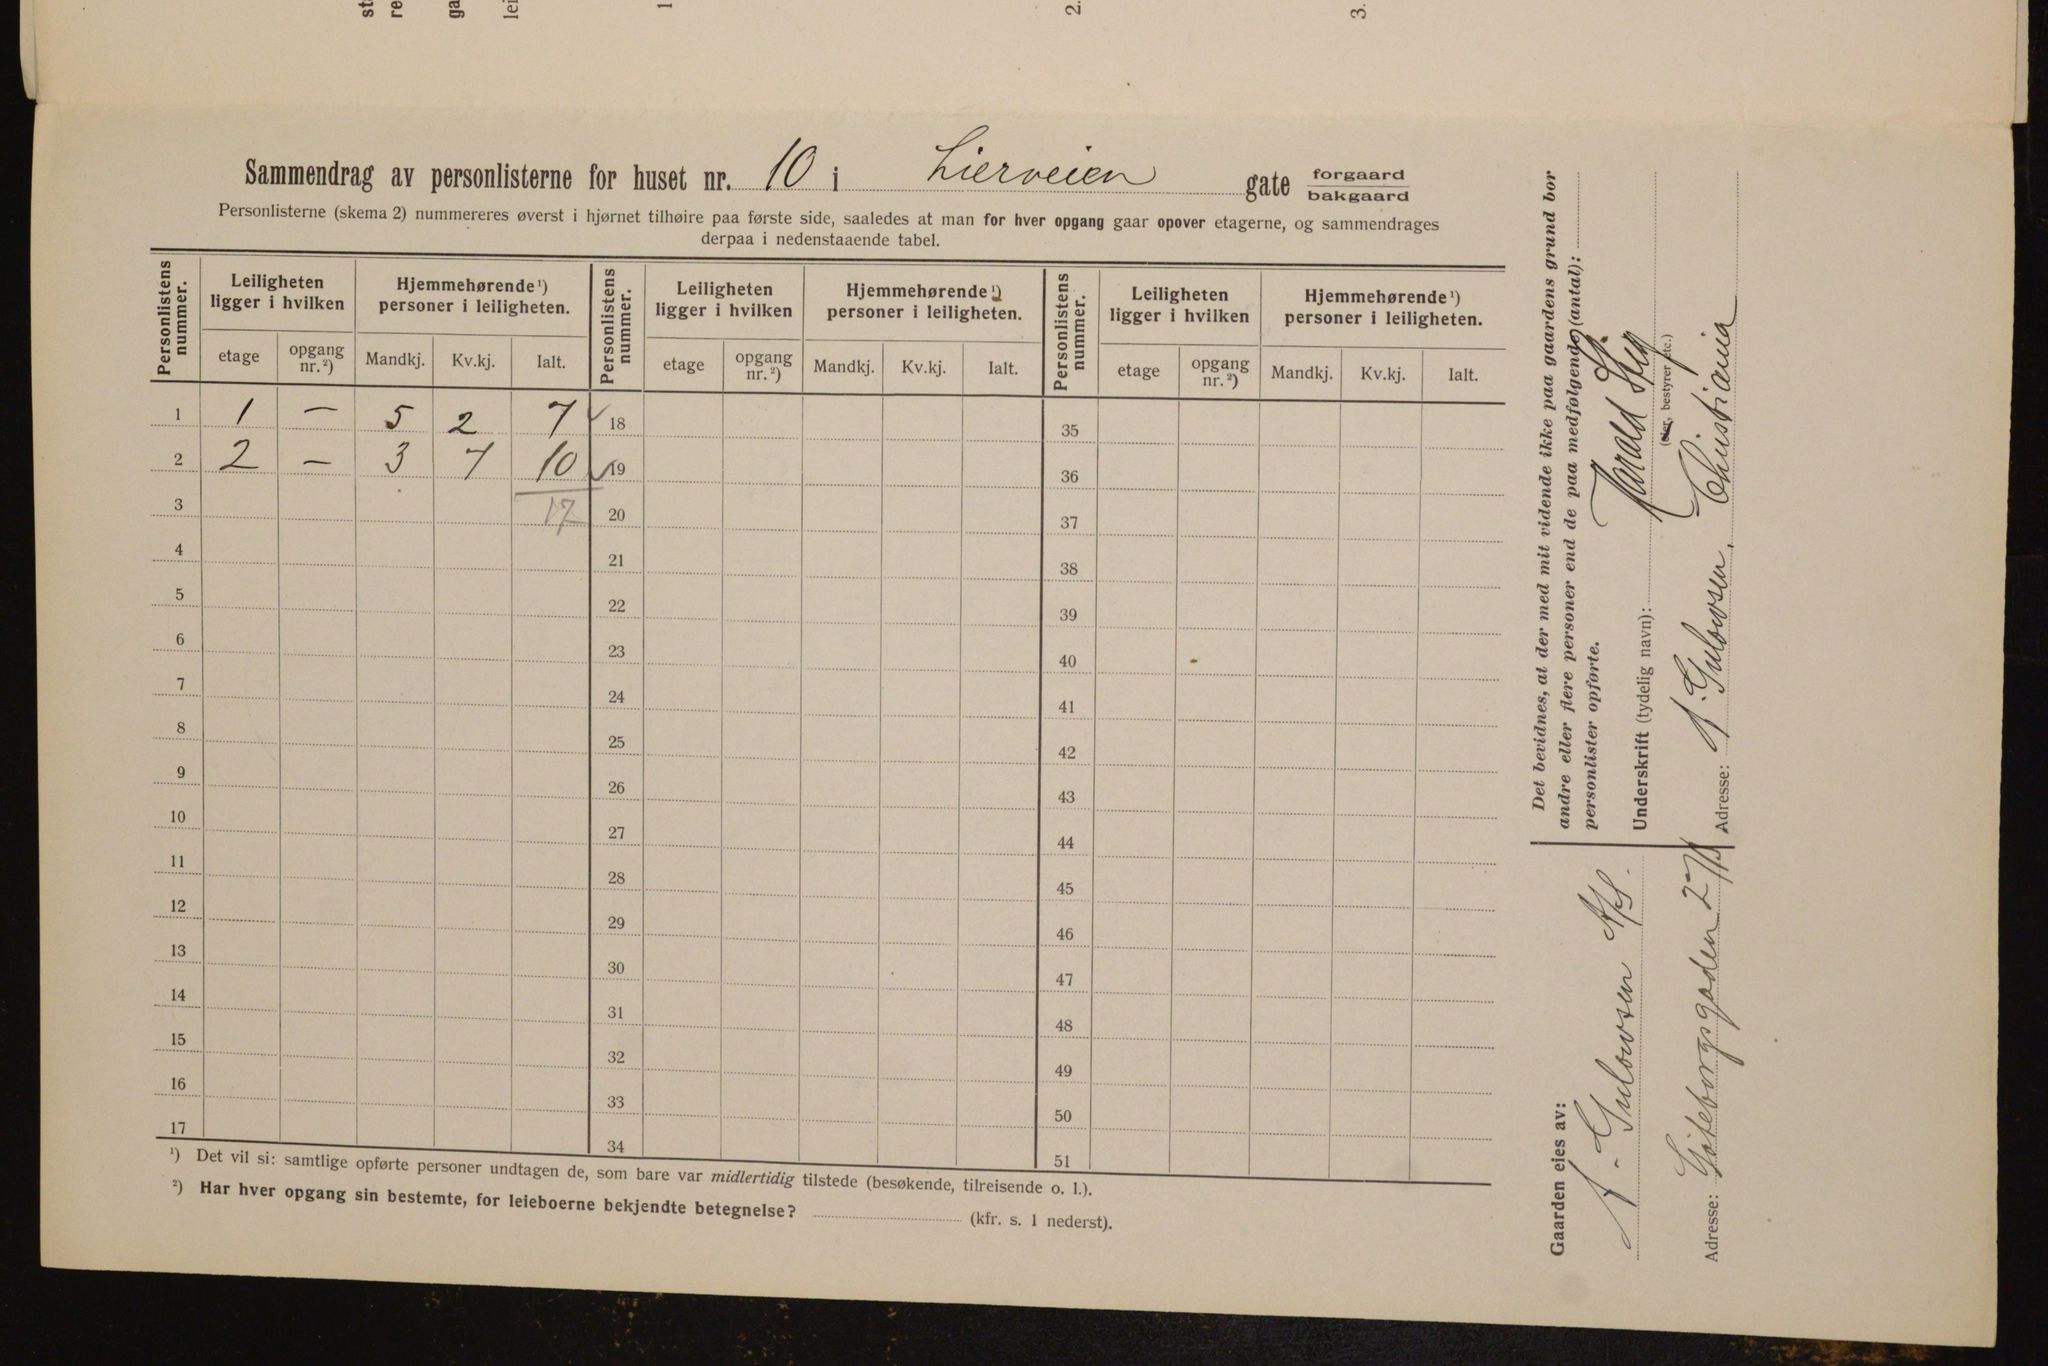 Sammendrag av personlisterne for huset nr. 10 i Lierveien gate forgaard
bakgaard
Personlisterne (skema 2) nummereres øverst i hjørnet tilhøire paa første side, saaledes at man for hver opgang gaar opover etagerne, og sammendrages
derpaa i nedenstaaende tabel.
Personlistens nummer. Leiligheten ligger i hvilken Hjemmehørende ¹) personer i leiligheten. Personlistens nummer. Leiligheten ligger i hvilken Hjemmehørende ¹) personer i leiligheten. Personlistens nummer. Leiligheten ligger i hvilken Hjemmehørende ¹) personer i leiligheten.
etage opgang nr. ²) Mandkj. Kv.kj. Ialt. etage opgang nr. ²) Mandkj. Kv.kj. Ialt. etage opgang nr. ²) Mandkj. Kv.kj. Ialt.
1 1 — 5 2 7 18 35
2 2 — 3 7 10 19 36
3 17 20 37
4 21 38
5 22 39
6 23 40
7 24 41
8 25 42
9 26 43
10 27 44
11 28 45
12 29 46
13 30 47
14 31 48
15 32 49
16 33 50
17 34 51
¹) Det vil si: samtlige opførte personer undtagen de, som bare var midlertidig tilstede (besøkende, tilreisende o. l.).
²) Har hver opgang sin bestemte, for leieboerne bekjendte betegnelse? (kfr. s. 1 nederst).
Det bevidnes, at der med mit vidende ikke paa gaardens grund bor
andre eller flere personer end de paa medfølgende (antal):
personlister opførte.
Underskrift (tydelig navn): Harald
(eier, bestyrer etc.)
Adresse: A. Gulowsen, Christiania
Gaarden eies av:
A. Gulowsen A/S.
Adresse: Göteborggaden 27b
2.
3.